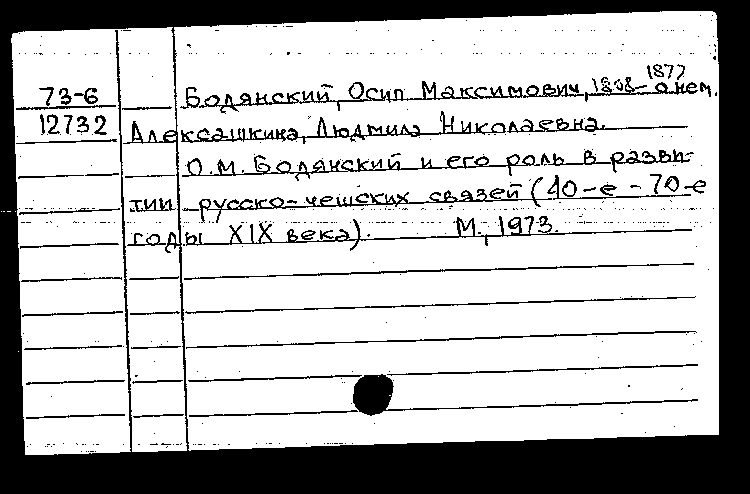 73-6 Бодянский, Осип Максимович, 1808-1877 о нем.
12732 Алексашкина, Людмила Николаевна.
О.М. Бодянский и его роль в разви-
тии русско-чешских связей (40-е - 70-е
годы XIX века). М., 1973.